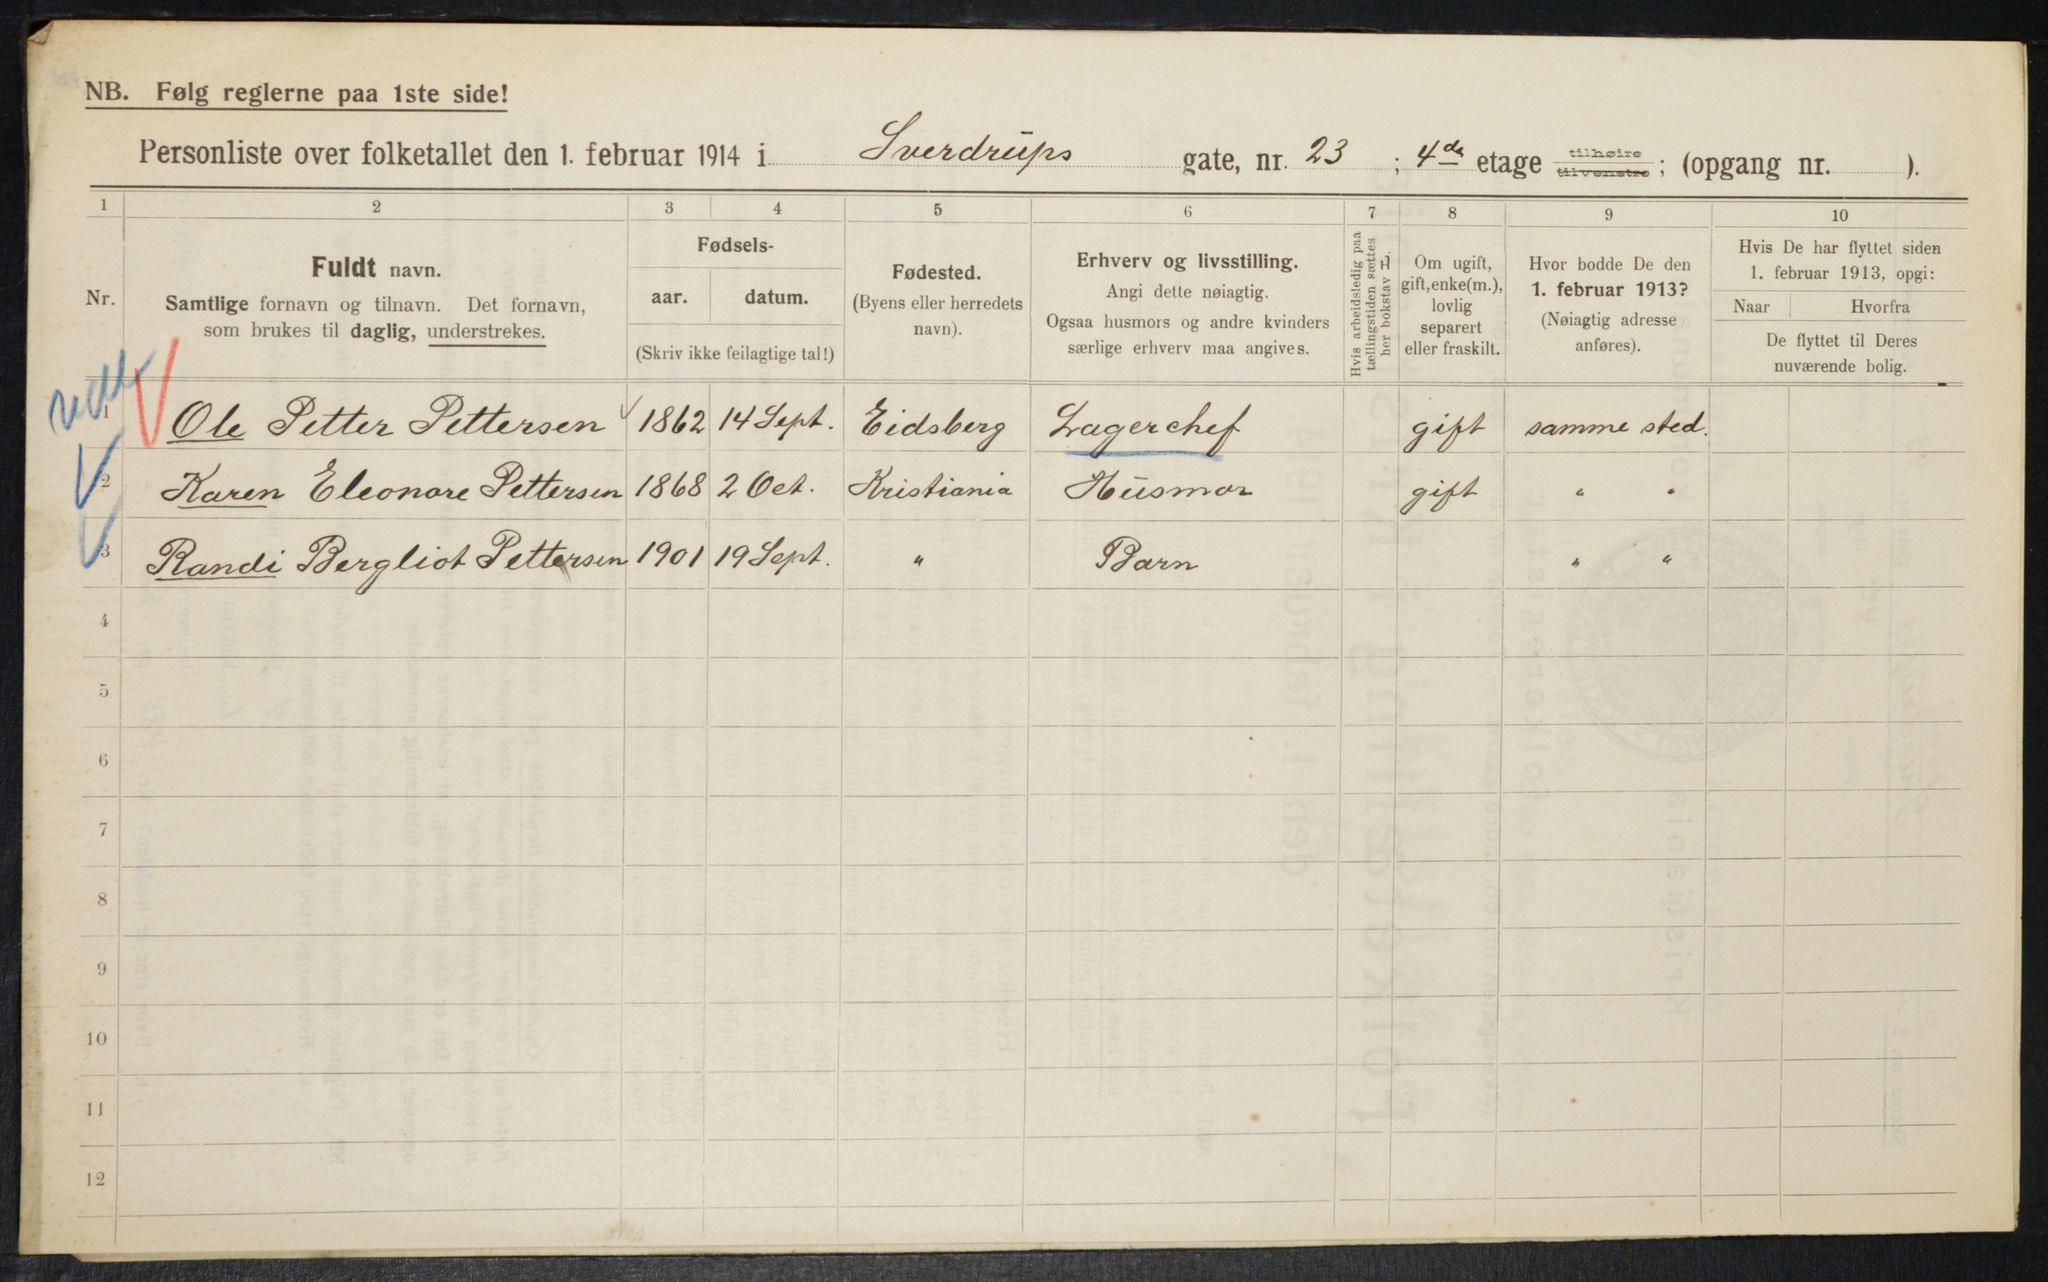 NB. Følg reglerne paa 1ste side!
Personliste over folketallet den 1. februar 1914 i Sverdrups gate, nr. 23 ; 4de etage tilhøire tilvenstre ; (opgang nr. ).
1 2 3 4 5 6 7 8 9 10
Nr.
Fuldt navn.
Samtlige fornavn og tilnavn. Det fornavn,
som brukes til daglig, understrekes.
Fødsels-
aar. datum.
(Skriv ikke feilagtige tal!)
Fødested.
(Byens eller herredets
navn).
Erhverv og livsstilling.
Angi dette nøiagtig.
Ogsaa husmors og andre kvinders
særlige erhverv maa angives.
Hvis arbeidsledig paa
tællingstiden sættes
her bokstav H
Om ugift,
gift, enke(m.),
lovlig
separert
eller fraskilt.
Hvor bodde De den
1. februar 1913?
(Nøiagtig adresse
anføres).
Hvis De har flyttet siden
1. februar 1913, opgi:
Naar Hvorfra
De flyttet til Deres
nuværende bolig.
1 Ole Petter Pettersen 1862 14 Sept. Eidsberg Lagerchef gift samme sted.
2 Karen Eleonore Pettersen 1868 2 Oct. Kristiania Husmor gift " "
3 Randi Bergliot Pettersen 1901 19 Sept. " Barn " "
4
5
6
7
8
9
10
11
12